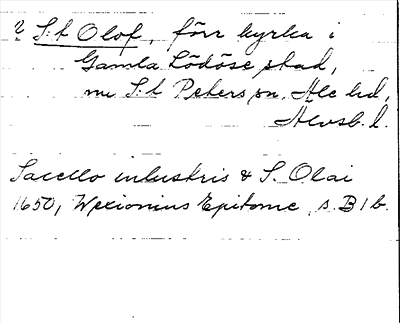 ? S:t Olof, förr kyrka i
Gamla Lödöse stad,
nu S:t Peters sn, Ale hd,
Älvsb. l.
Sacello inlustris & S. Olai
1650, Wexionius Epitome, s. B 1 b.